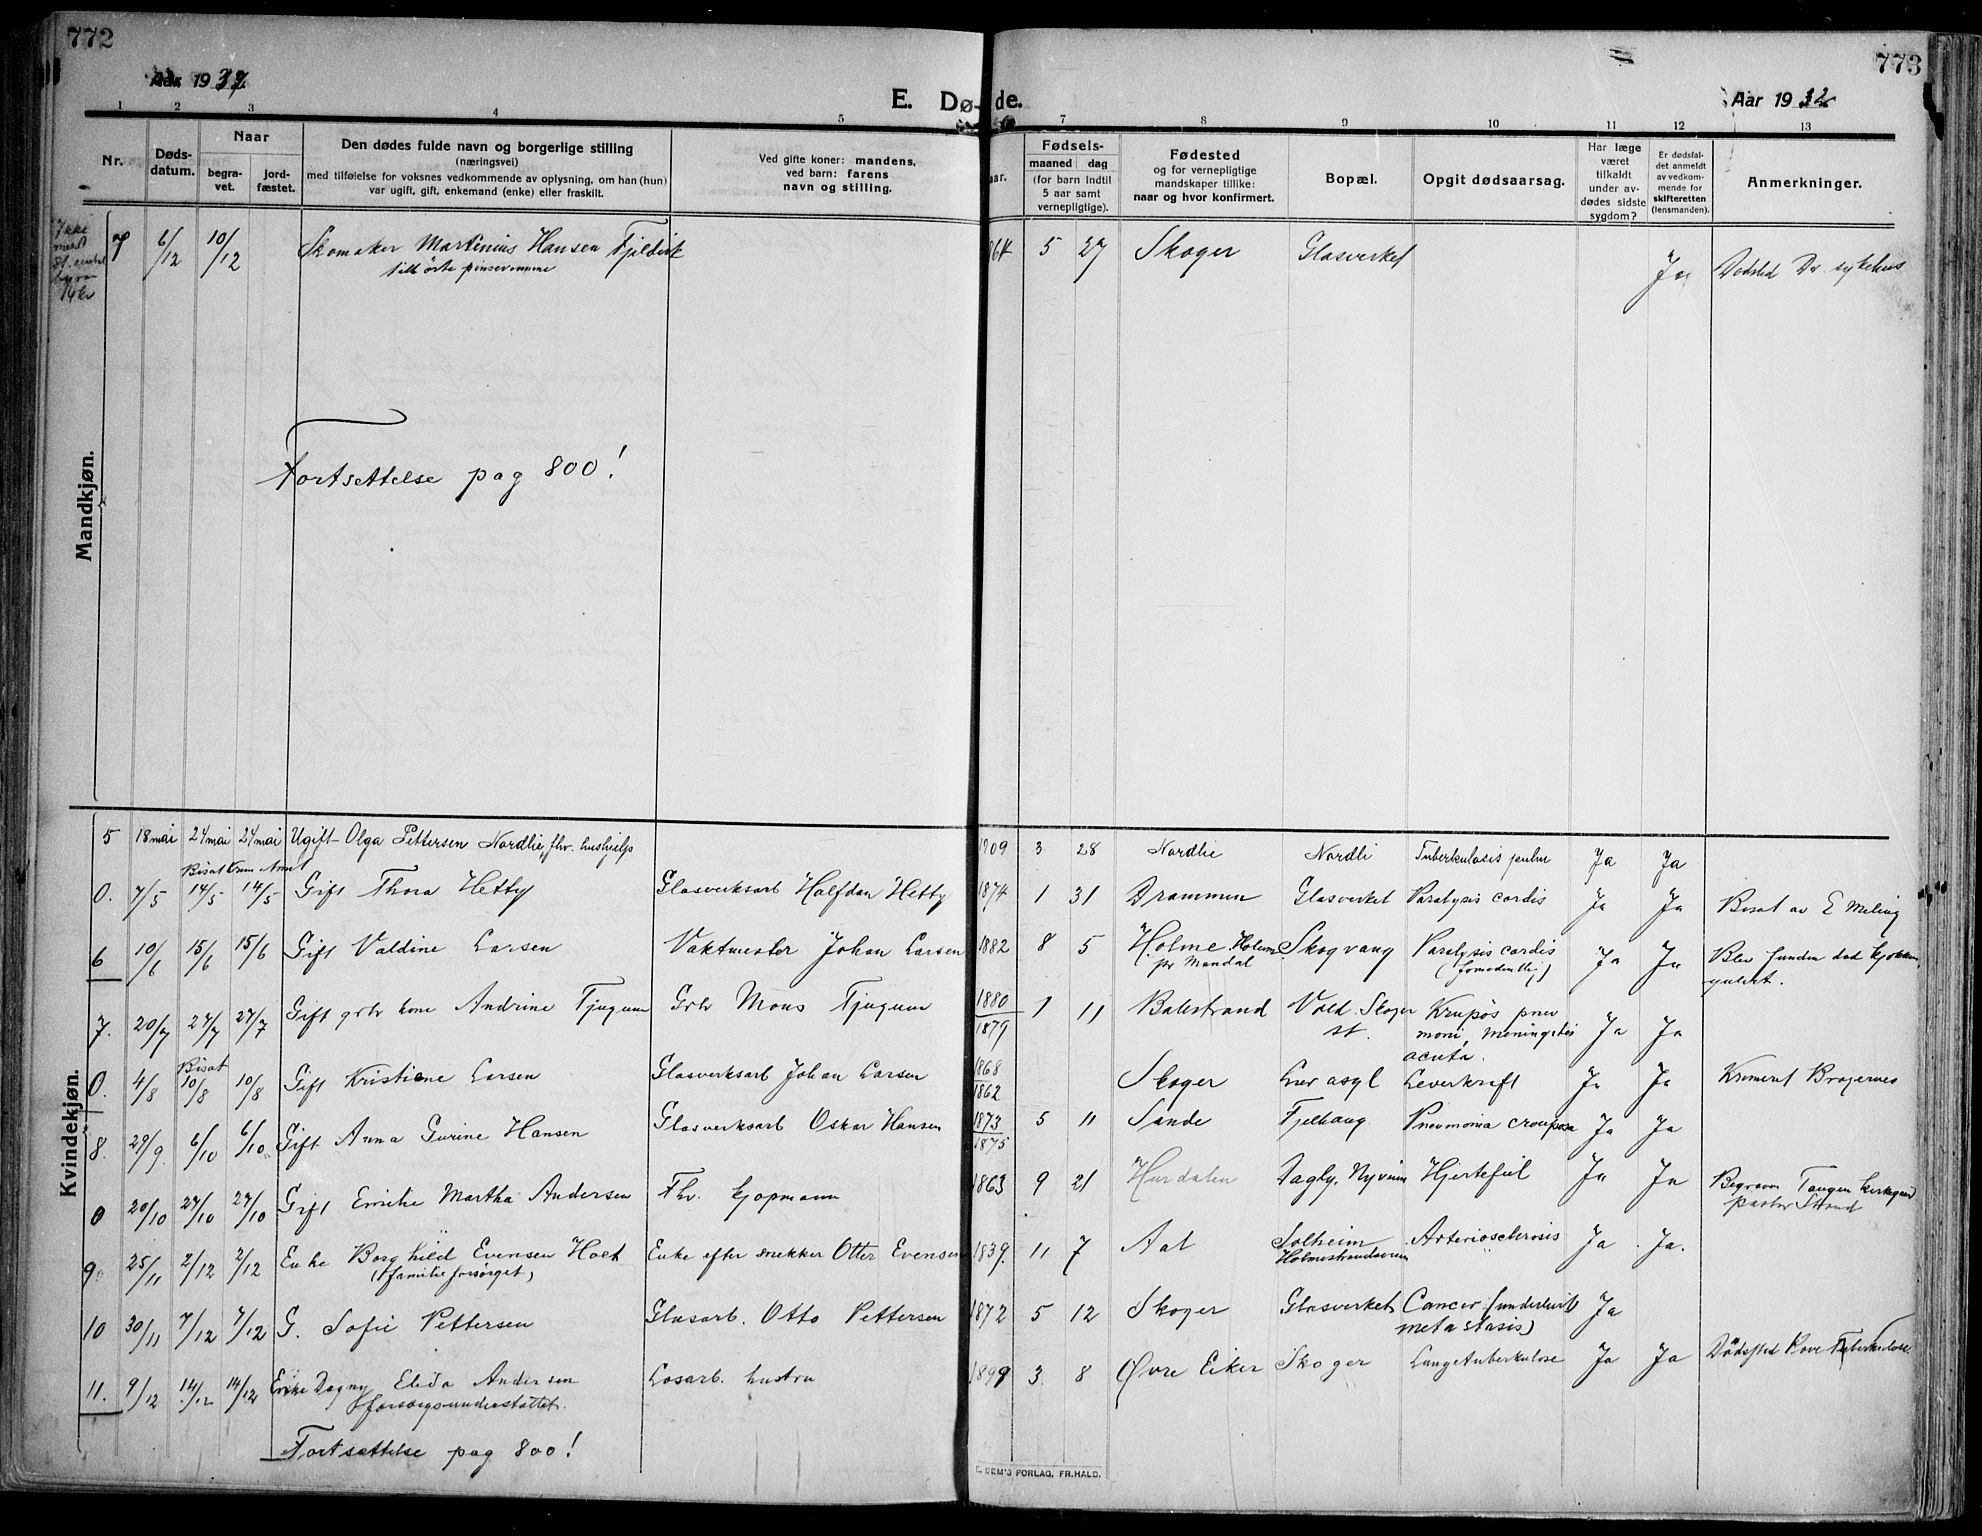 772
773
Aar 1932
E. Dø-de.
Aar 1932
1 2 3 4 5 7 8 9 10 11 12 13
Nr.
Døds-
datum.
Naar
begra-
vet.
jord-
fæstet.
Den dødes fulde navn og borgerlige stilling
(næringsvei)
med tilføielse for voksnes vedkommende av oplysning, om han (hun)
var ugift, gift, enkemand (enke) eller fraskilt.
Ved gifte koner: mandens,
ved barn: farens
navn og stilling.
aar.
Fødsels-
maaned dag
(for barn indtil
5 aar samt
vernepligtige).
Fødested
og for vernepligtige
mandskaper tillike:
naar og hvor konfirmert.
Bopæl.
Opgit dødsaarsag.
Har læge
været
tilkaldt
under av-
dødes sidste
sygdom?
Er dødsfal-
det anmeldt
av vedkom-
mende for
skifteretten
(lensmanden).
Anmerkninger.
Mandkjøn.
Ikke
St.
14 kr
7 6/12 10/12 Skomaker Martinius Hansen Fjeldvik 1864 5 27 Skoger Glasverket Ja Dødsted Dr. sykehus
pinsevennene
Fortsettelse pag 800!
Kvindekjøn.
5 18 mai 24 mai 24 mai Ugift Olga Pettersen Nordlie, fhv. hushjelp 1909 3 28 Nordlie Nordli Tuberkulosis pulm Ja Ja
Bisat Krem
0. 7/5 14/5 14/5 Gift Thora Hetty Glasverksarb Halfdan Hetty 1874 1 31 Drammen Glasverket Paralysis cordis Ja Ja Bisat av E Meling
6 10/6 15/6 15/6 Gift Valdine Larsen Vaktmester Johan Larsen 1882 8 5 Holme Holum Skogvang Paralysis cordis Ja Ja Blev funden død kjøkken
pr Mandal (formodentlig) gulvet.
7. 20/7 24/7 24/7 Gift grbr kone Andrine Tjugum Grbr Mons Tjugum 1880 1 11 Balestrand Vold. Skoger Krupøs pneu
1879 st. moni, Meningitis Ja Ja
acuta.
Bisat
0. 4/8 10/8 10/8 Gift Kristiene Larsen Glasverksarb Johan Larsen 1868 Skoger asyl Leverkreft Ja Ja Kremert Bragernes
1862
8. 29/9. 6/10 6/10 Gift Anna Gurine Hansen Glasverksarb Oskar Hansen 1873 5 11 Sande Fjelhaug. Pneumonia crouposa Ja Ja
1875
0 20/10 27/10 27/10 Gift Emilie Martha Andersen Fhv. kjøpmann 1863 9 21 Hurdalen Dagly, Nyveien Hjertefeil Ja Ja Begraven Tangen kirkegaard
pastor Strand
9. 25/11 2/12 2/12 Enke Borghild Evensen Holt Enke efter snekker Otter Evensen 1839. 11 7 Aal Solheim Arteriosclerosis Ja Ja.
(familieforsørget) Holmestrandsveien
10 30/11 7/12 7/12 G. Sofie Pettersen Glasarb. Otto Pettersen 1872 5 12 Skoger Glasverket Cancer (underlivs Ja
metastasis)
11. 9/12 14/12 14/12 Enke Dagny Elida Andersen Løsarb. hustru 1899 3. 8 Øvre Eiker Skoger Lungetuberkulose Ja Ja Dødssted Rove Tuberkulose
forsorgsunderstøttet.
Fortsettelse pag 800!
FORLAG, FR.HALD.